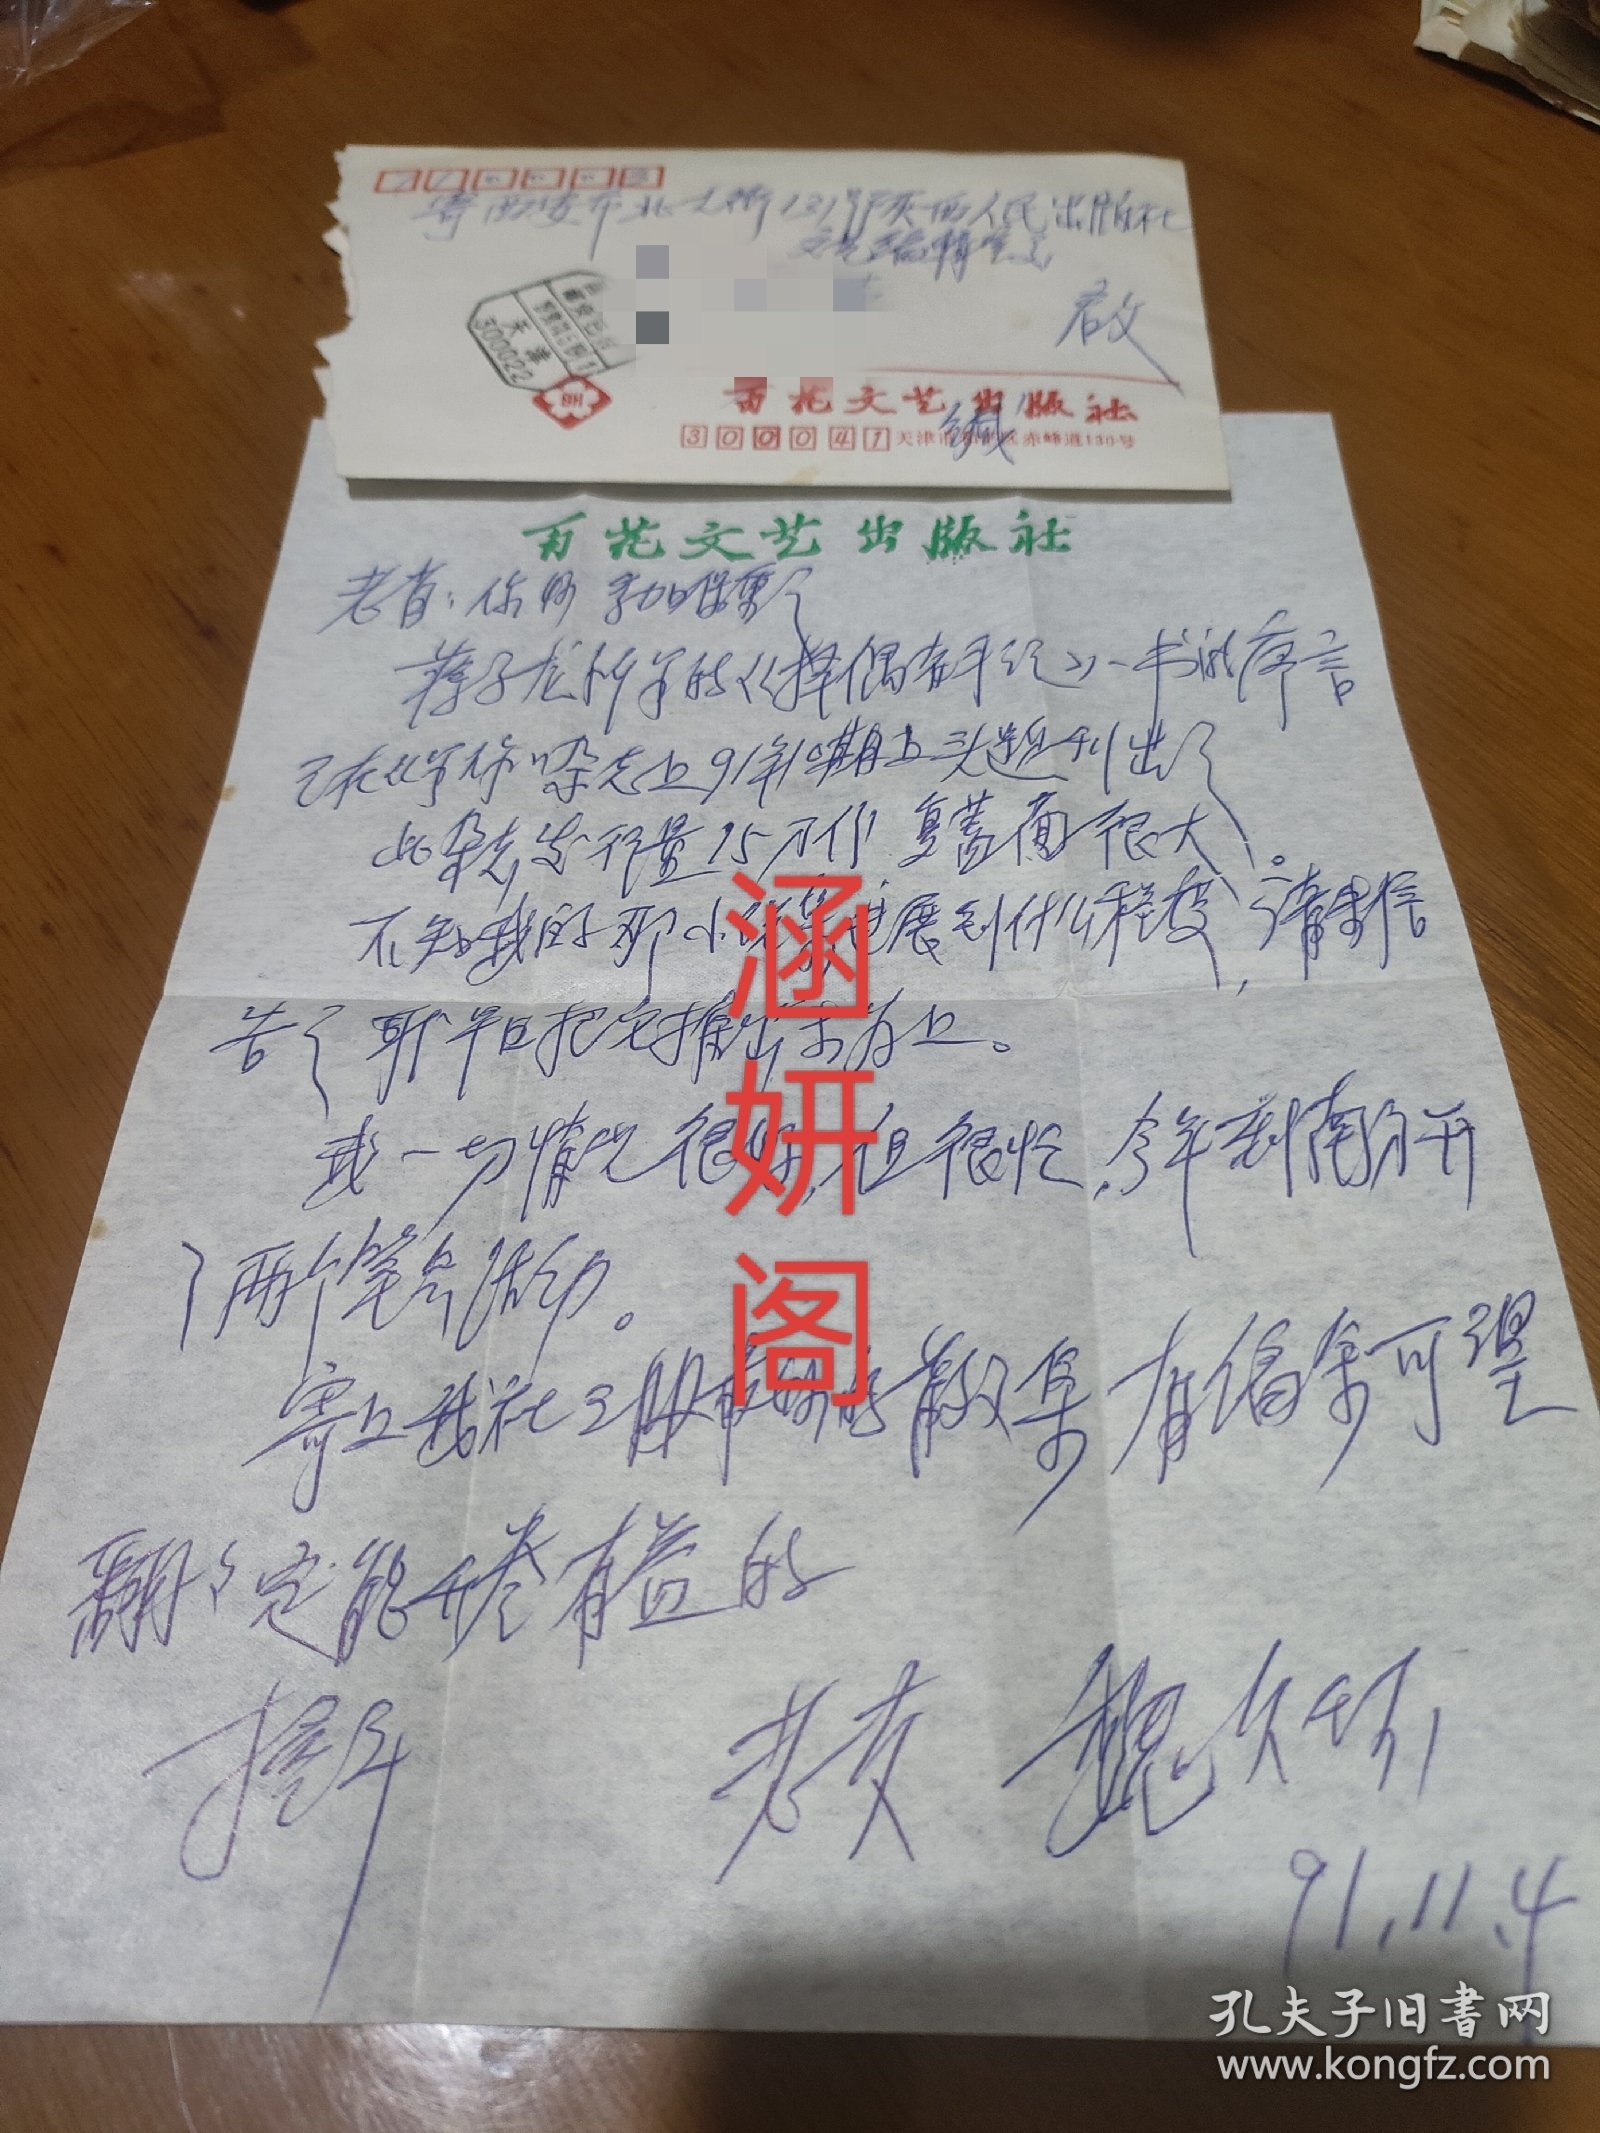 寄西安市北大街131号陕西人民出版社
文艺编辑室
启
天津
300022
百花文艺出版社
缄
300041 天津市和平区赤峰道130号
百花文艺出版社
老肖:你好
蒋子龙所写的《择偶》一书的序言
已在杂志上91年10期上头题刊出了
此杂志发行量15万份 复盖面很大。
不知我的那小说集进展到什么程度,请来信
告了 早日把它推出来为上。
我一切情况很好,但很忙,今年到南方开
了两个笔会活动。
寄上我社出版的散文集 有偏余可望
翻了定能开卷有益的
握手
老友 魏久环
91.11.4
涵妍阁
孔夫子旧书网
www.kongfz.com